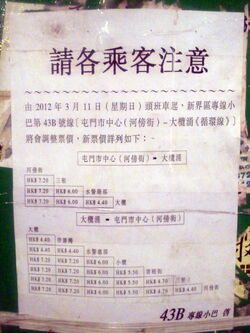 請各乘客注意
由 2012 年 3 月 11 日（星期日）頭班車起，新界區專線小
巴第 43B 號線〔屯門市中心（河傍街）－大欖涌《循環線》〕
將會調整票價，新票價詳列如下：-
屯門市中心（河傍街）－大欖涌
河傍街
HK$ 7.20 三聖
HK$ 7.20 HK$ 6.00 水警基地
HK$ 7.20 HK$ 6.00 HK$ 4.40 大欖
大欖涌－屯門市中心（河傍街）
大欖
HK$ 4.40
HK$ 4.40 HK$ 4.40 水警基地
HK$ 7.20 HK$ 6.00 HK$ 6.00 小欖
HK$ 7.20 HK$ 6.00 HK$ 6.00 HK$ 5.50
HK$ 7.20 HK$ 6.00 HK$ 6.00 HK$ 5.50 HK$ 4.70 三聖
HK$ 7.20 HK$ 6.00 HK$ 6.00 HK$ 5.50 HK$ 4.70 HK$ 4.40 河傍街
43B 專線小巴 啓